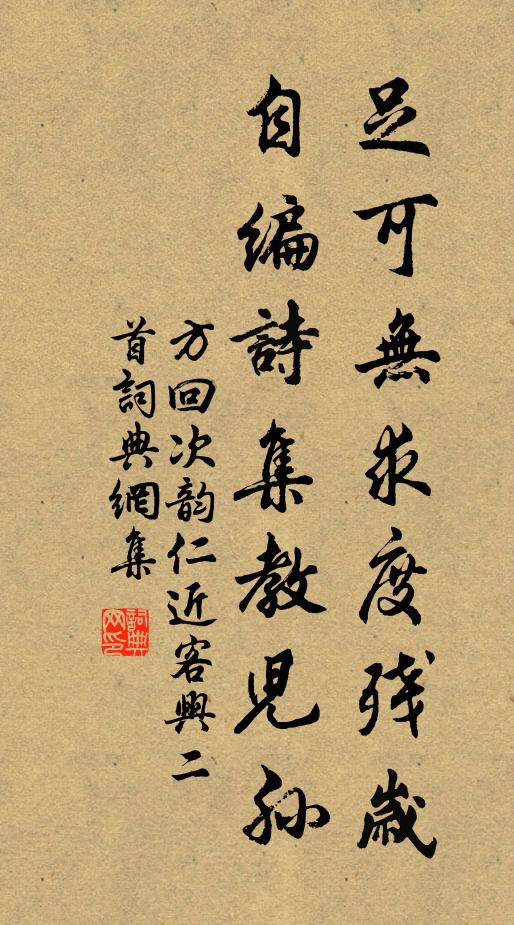 足可無求度殘歲
自編詩集教兒孫
方回次韵仁近客興二
首詞典網集
詞典
网印